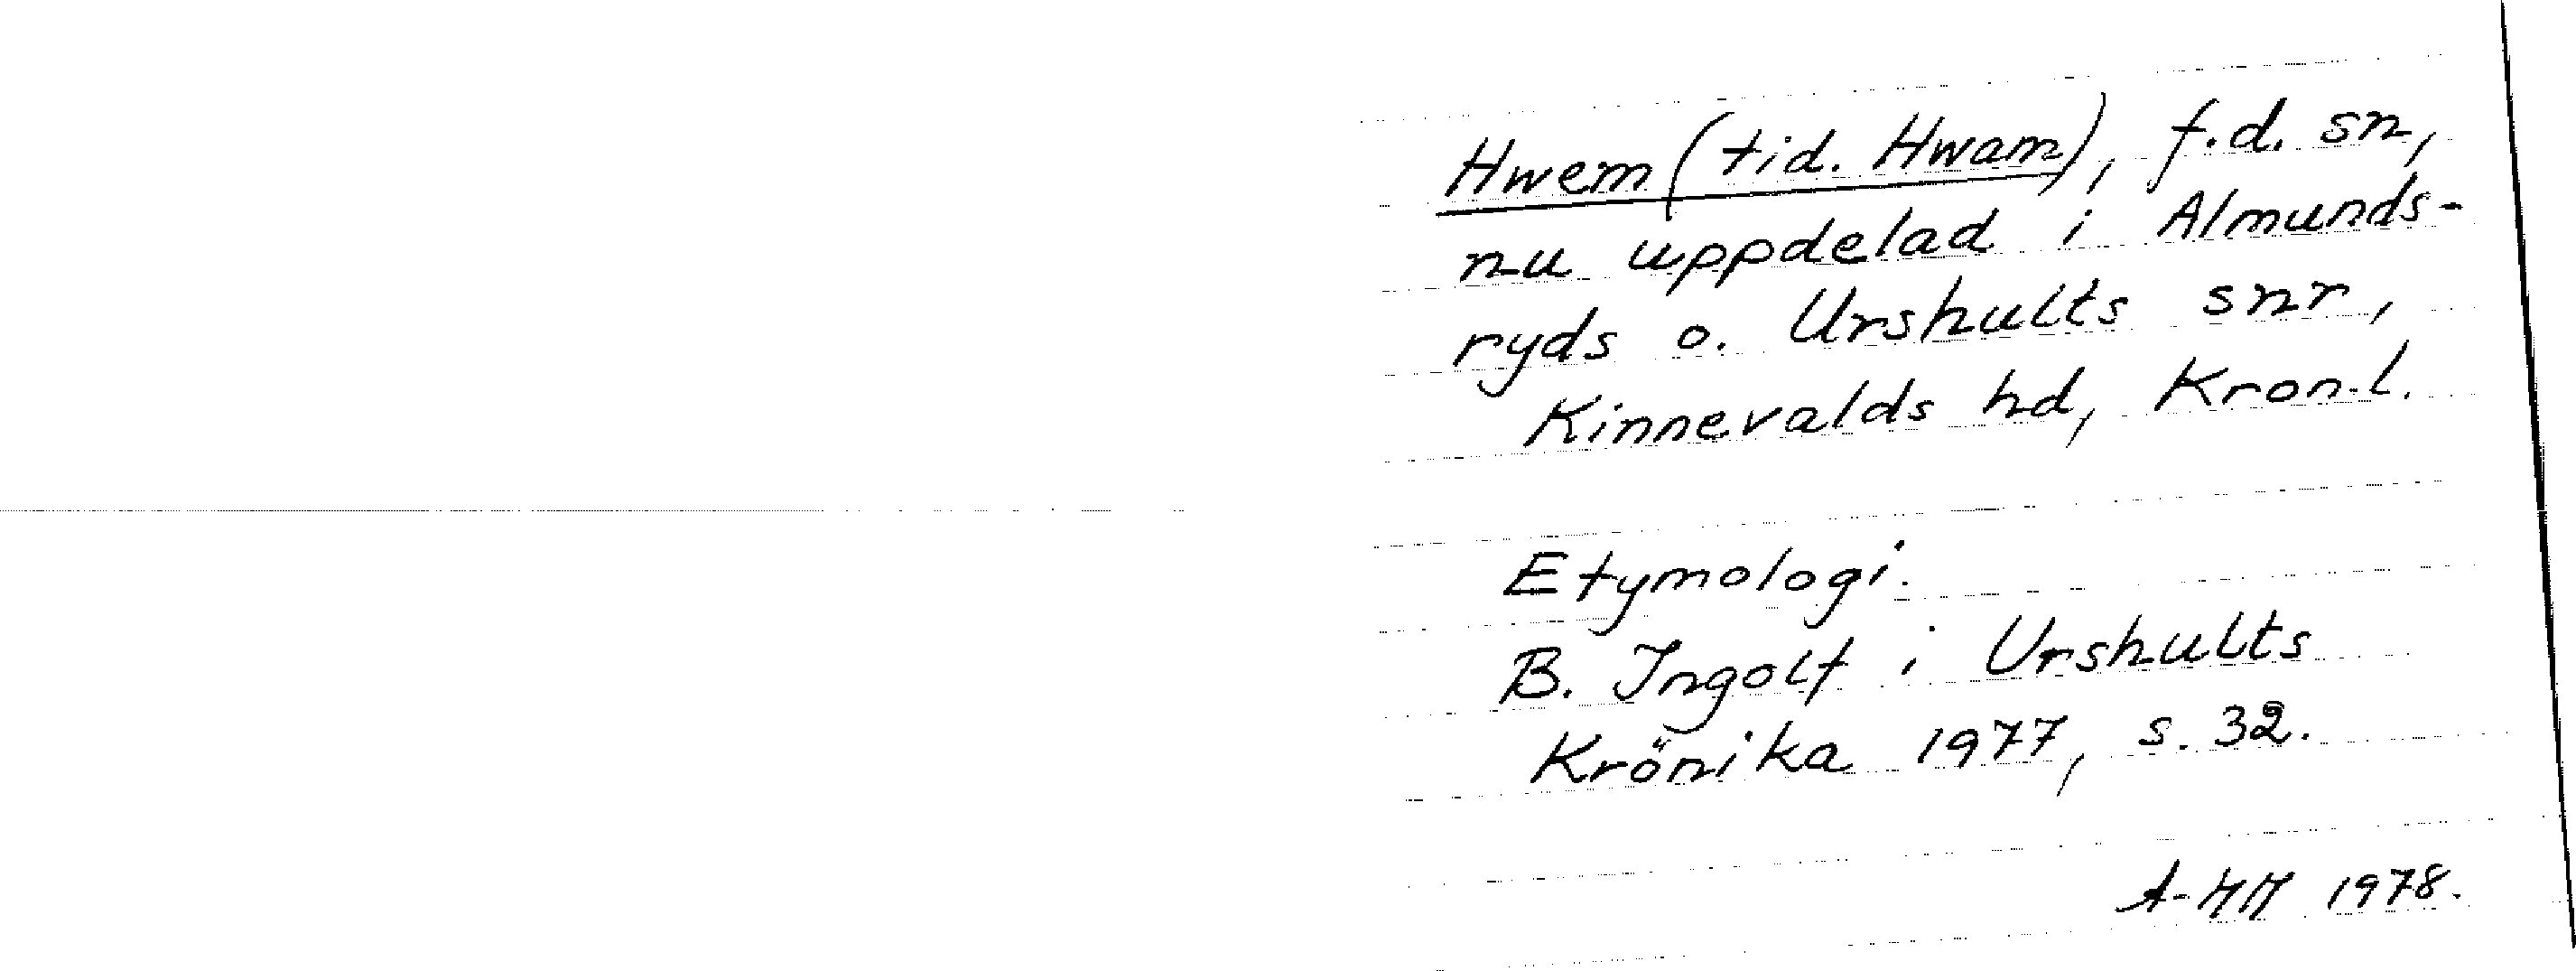 Hwem (tid. Hwam), f.d. sn,
nu uppdelad i Almunds-
ryds o. Urshults snr,
Kinnevalds hd, Kron.l.
Etymologi.
B. Ingolf i Urshults
Krönika 1977, s. 32.
1978.